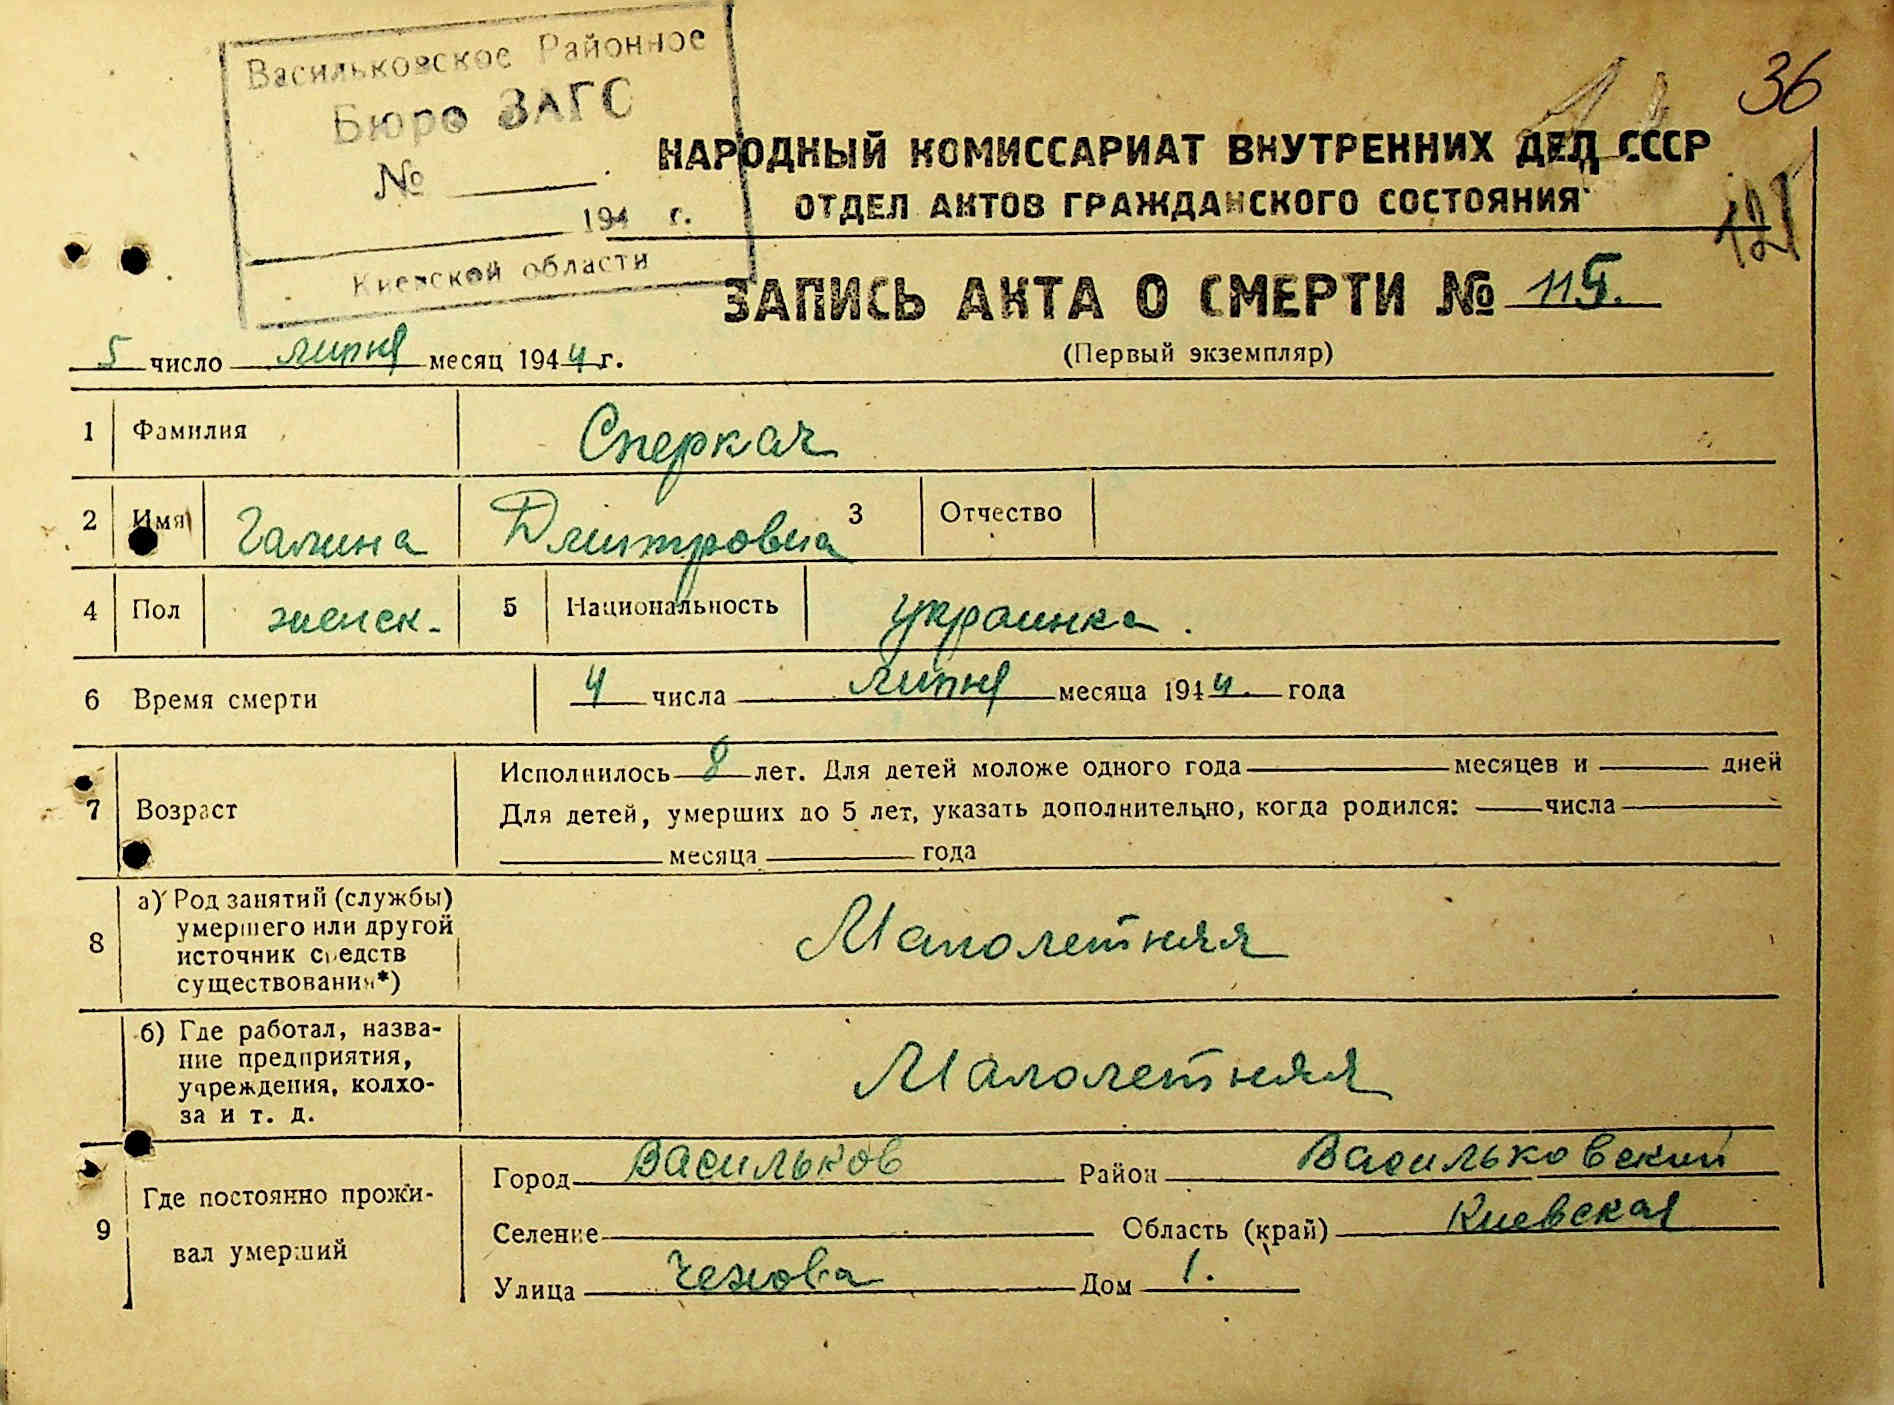 Васильковское Районное
Бюро ЗАГС
№
194 г.
Киевской области
36
НАРОДНЫЙ КОМИССАРИАТ ВНУТРЕННИХ ДЕЛ СССР
ОТДЕЛ АКТОВ ГРАЖДАНСКОГО СОСТОЯНИЯ
ЗАПИСЬ АКТА О СМЕРТИ № 115.
5 число липня месяц 1944 г.
(Первый экземпляр)
1 Фамилия Сперкач
2 Имя Галина Дмитровна 3 Отчество
4 Пол женск. 5 Национальность украинка.
6 Время смерти 4 числа липня месяца 1944. года
Исполнилось 8 лет. Для детей моложе одного года месяцев и дней
7 Возраст Для детей, умерших до 5 лет, указать дополнительно, когда родился: числа
месяца года
8 а) Род занятий (службы)
умершего или другой
источник средств
существования*)
Малолетняя
б) Где работал, назва-
ние предприятия,
учреждения, колхо-
за и т. д.
Малолетняя
9 Где постоянно прожи-
вал умерший
Город Васильков Район Васильковский
Селение Область (край) Киевская
Улица Чехова Дом 1.